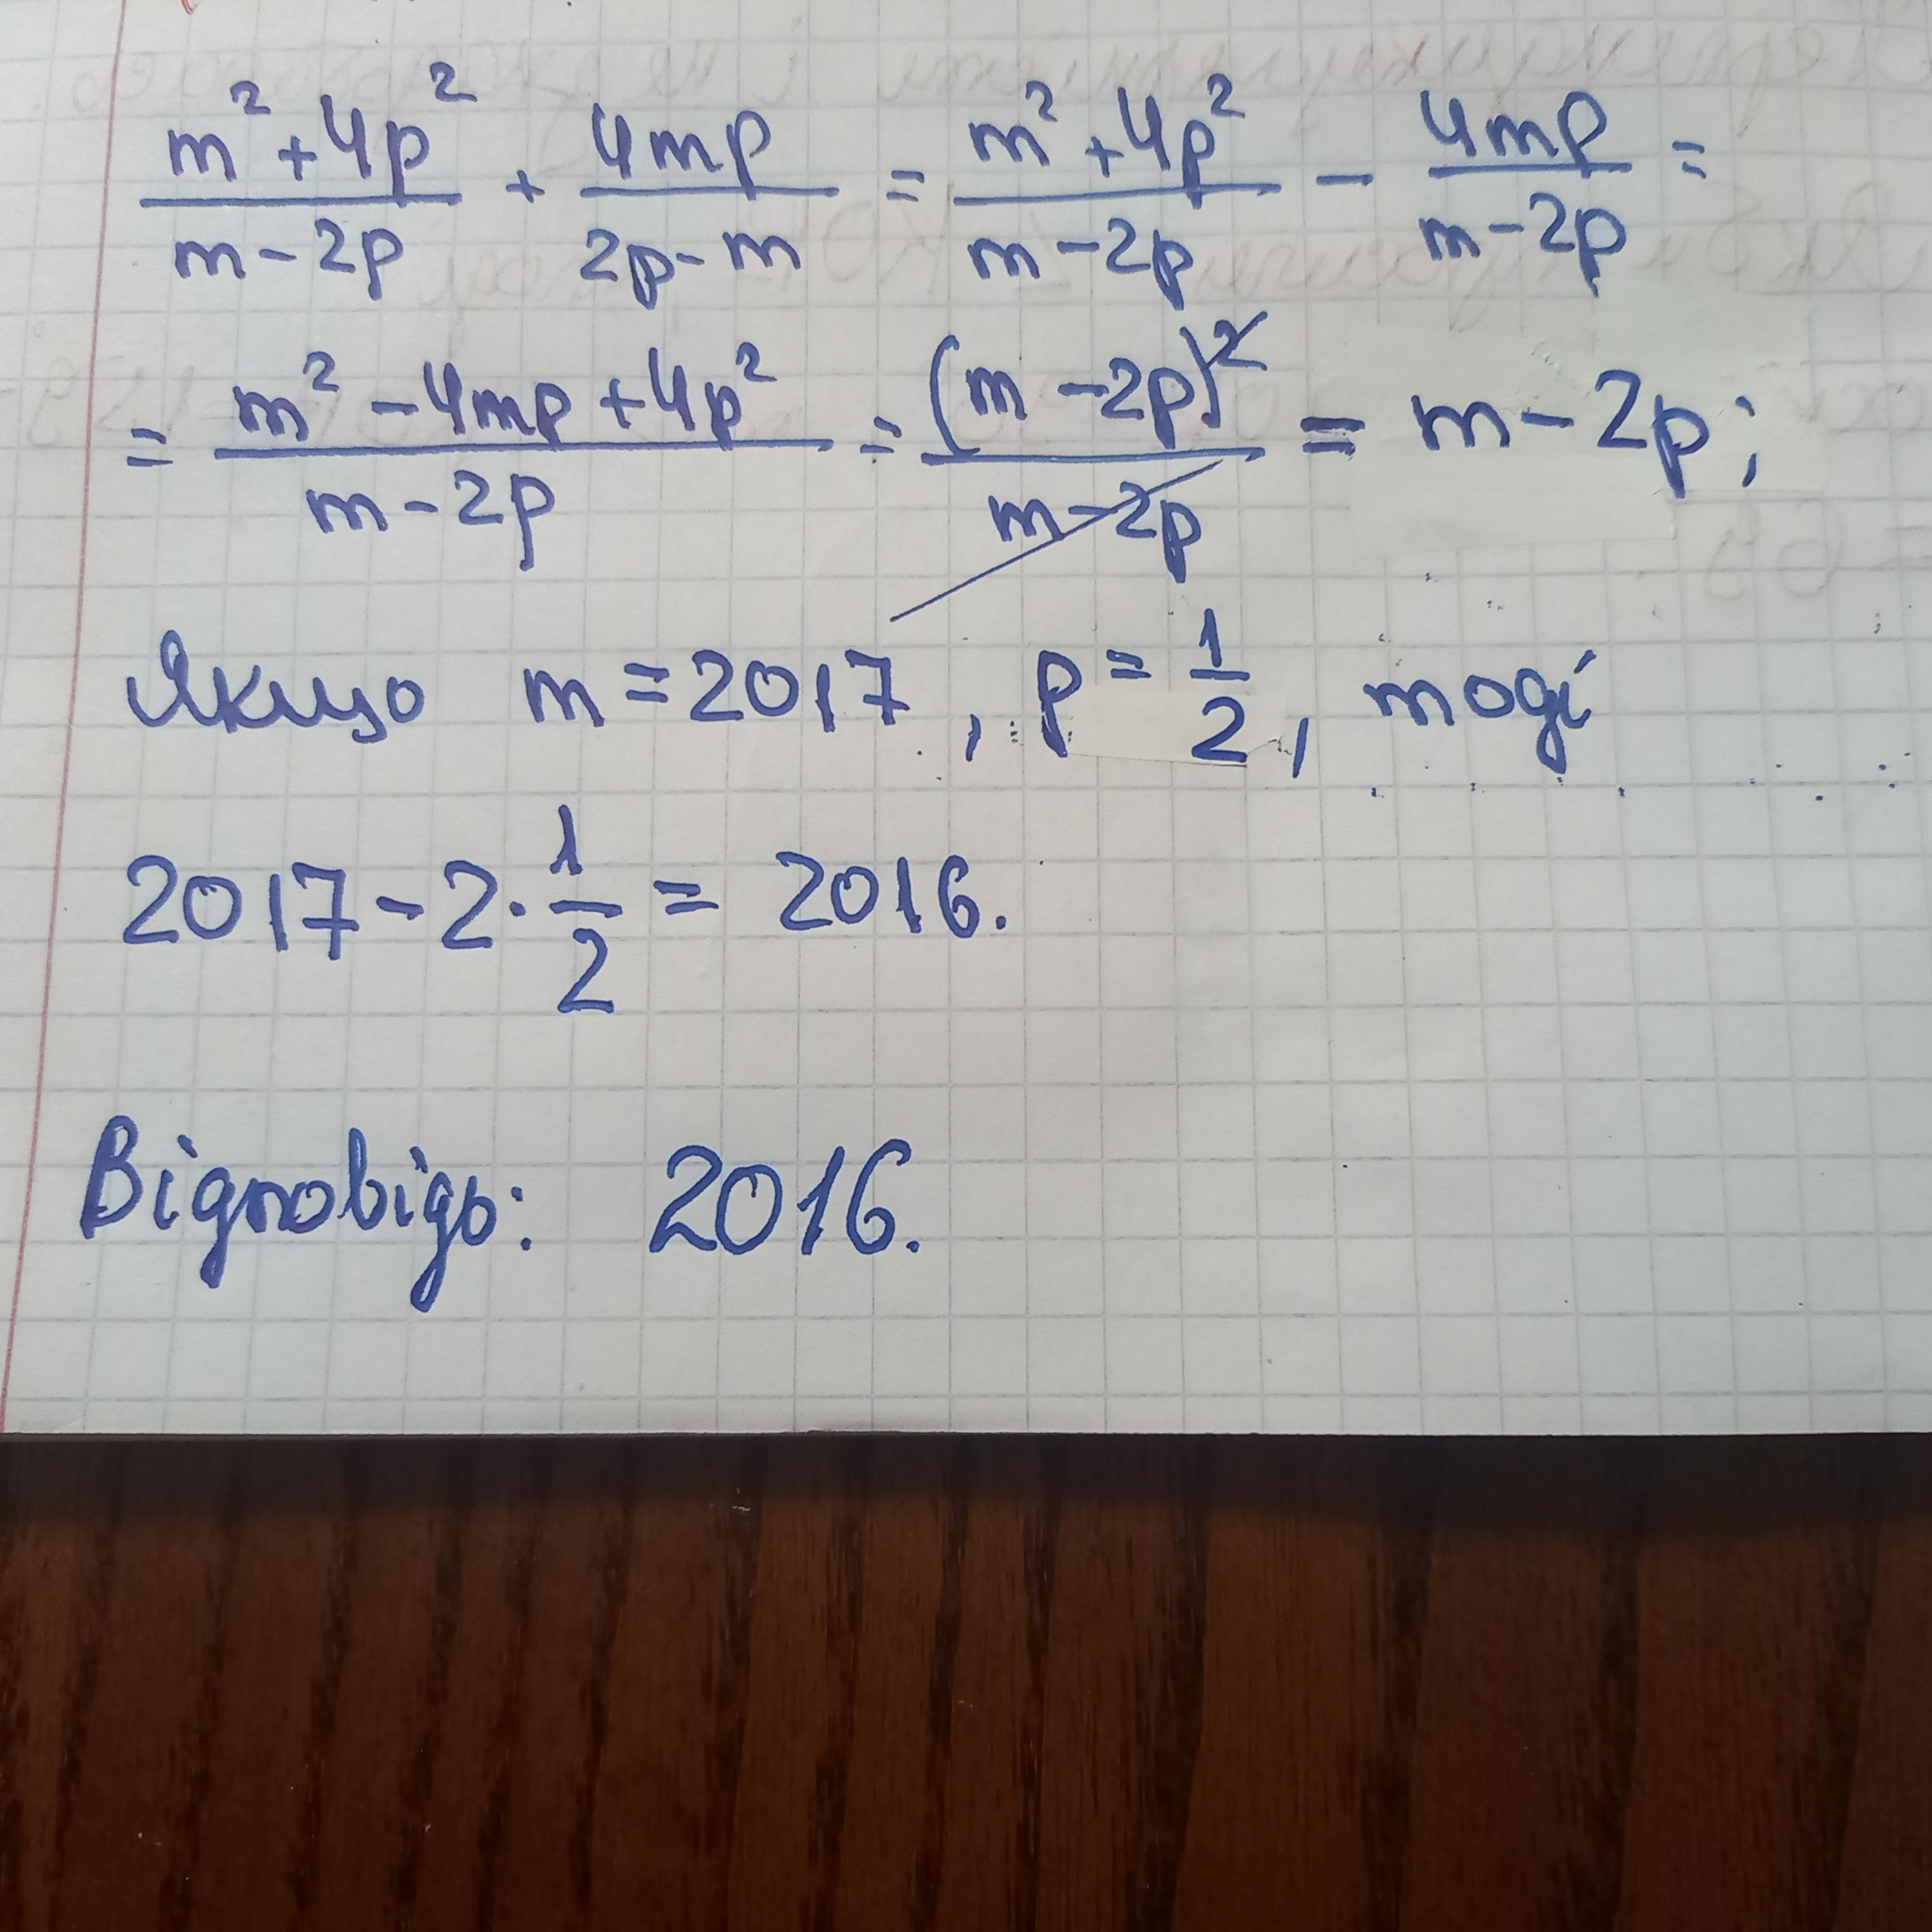 m² + 4p² / m - 2p + 4mp / 2p - m = m² + 4p² / m - 2p - 4mp / m - 2p =
= m² - 4mp + 4p² / m - 2p = (m - 2p)² / m - 2p = m - 2p;
Якщо m = 2017, p = 1/2, тоді
2017 - 2 · 1/2 = 2016.
Відповідь: 2016.